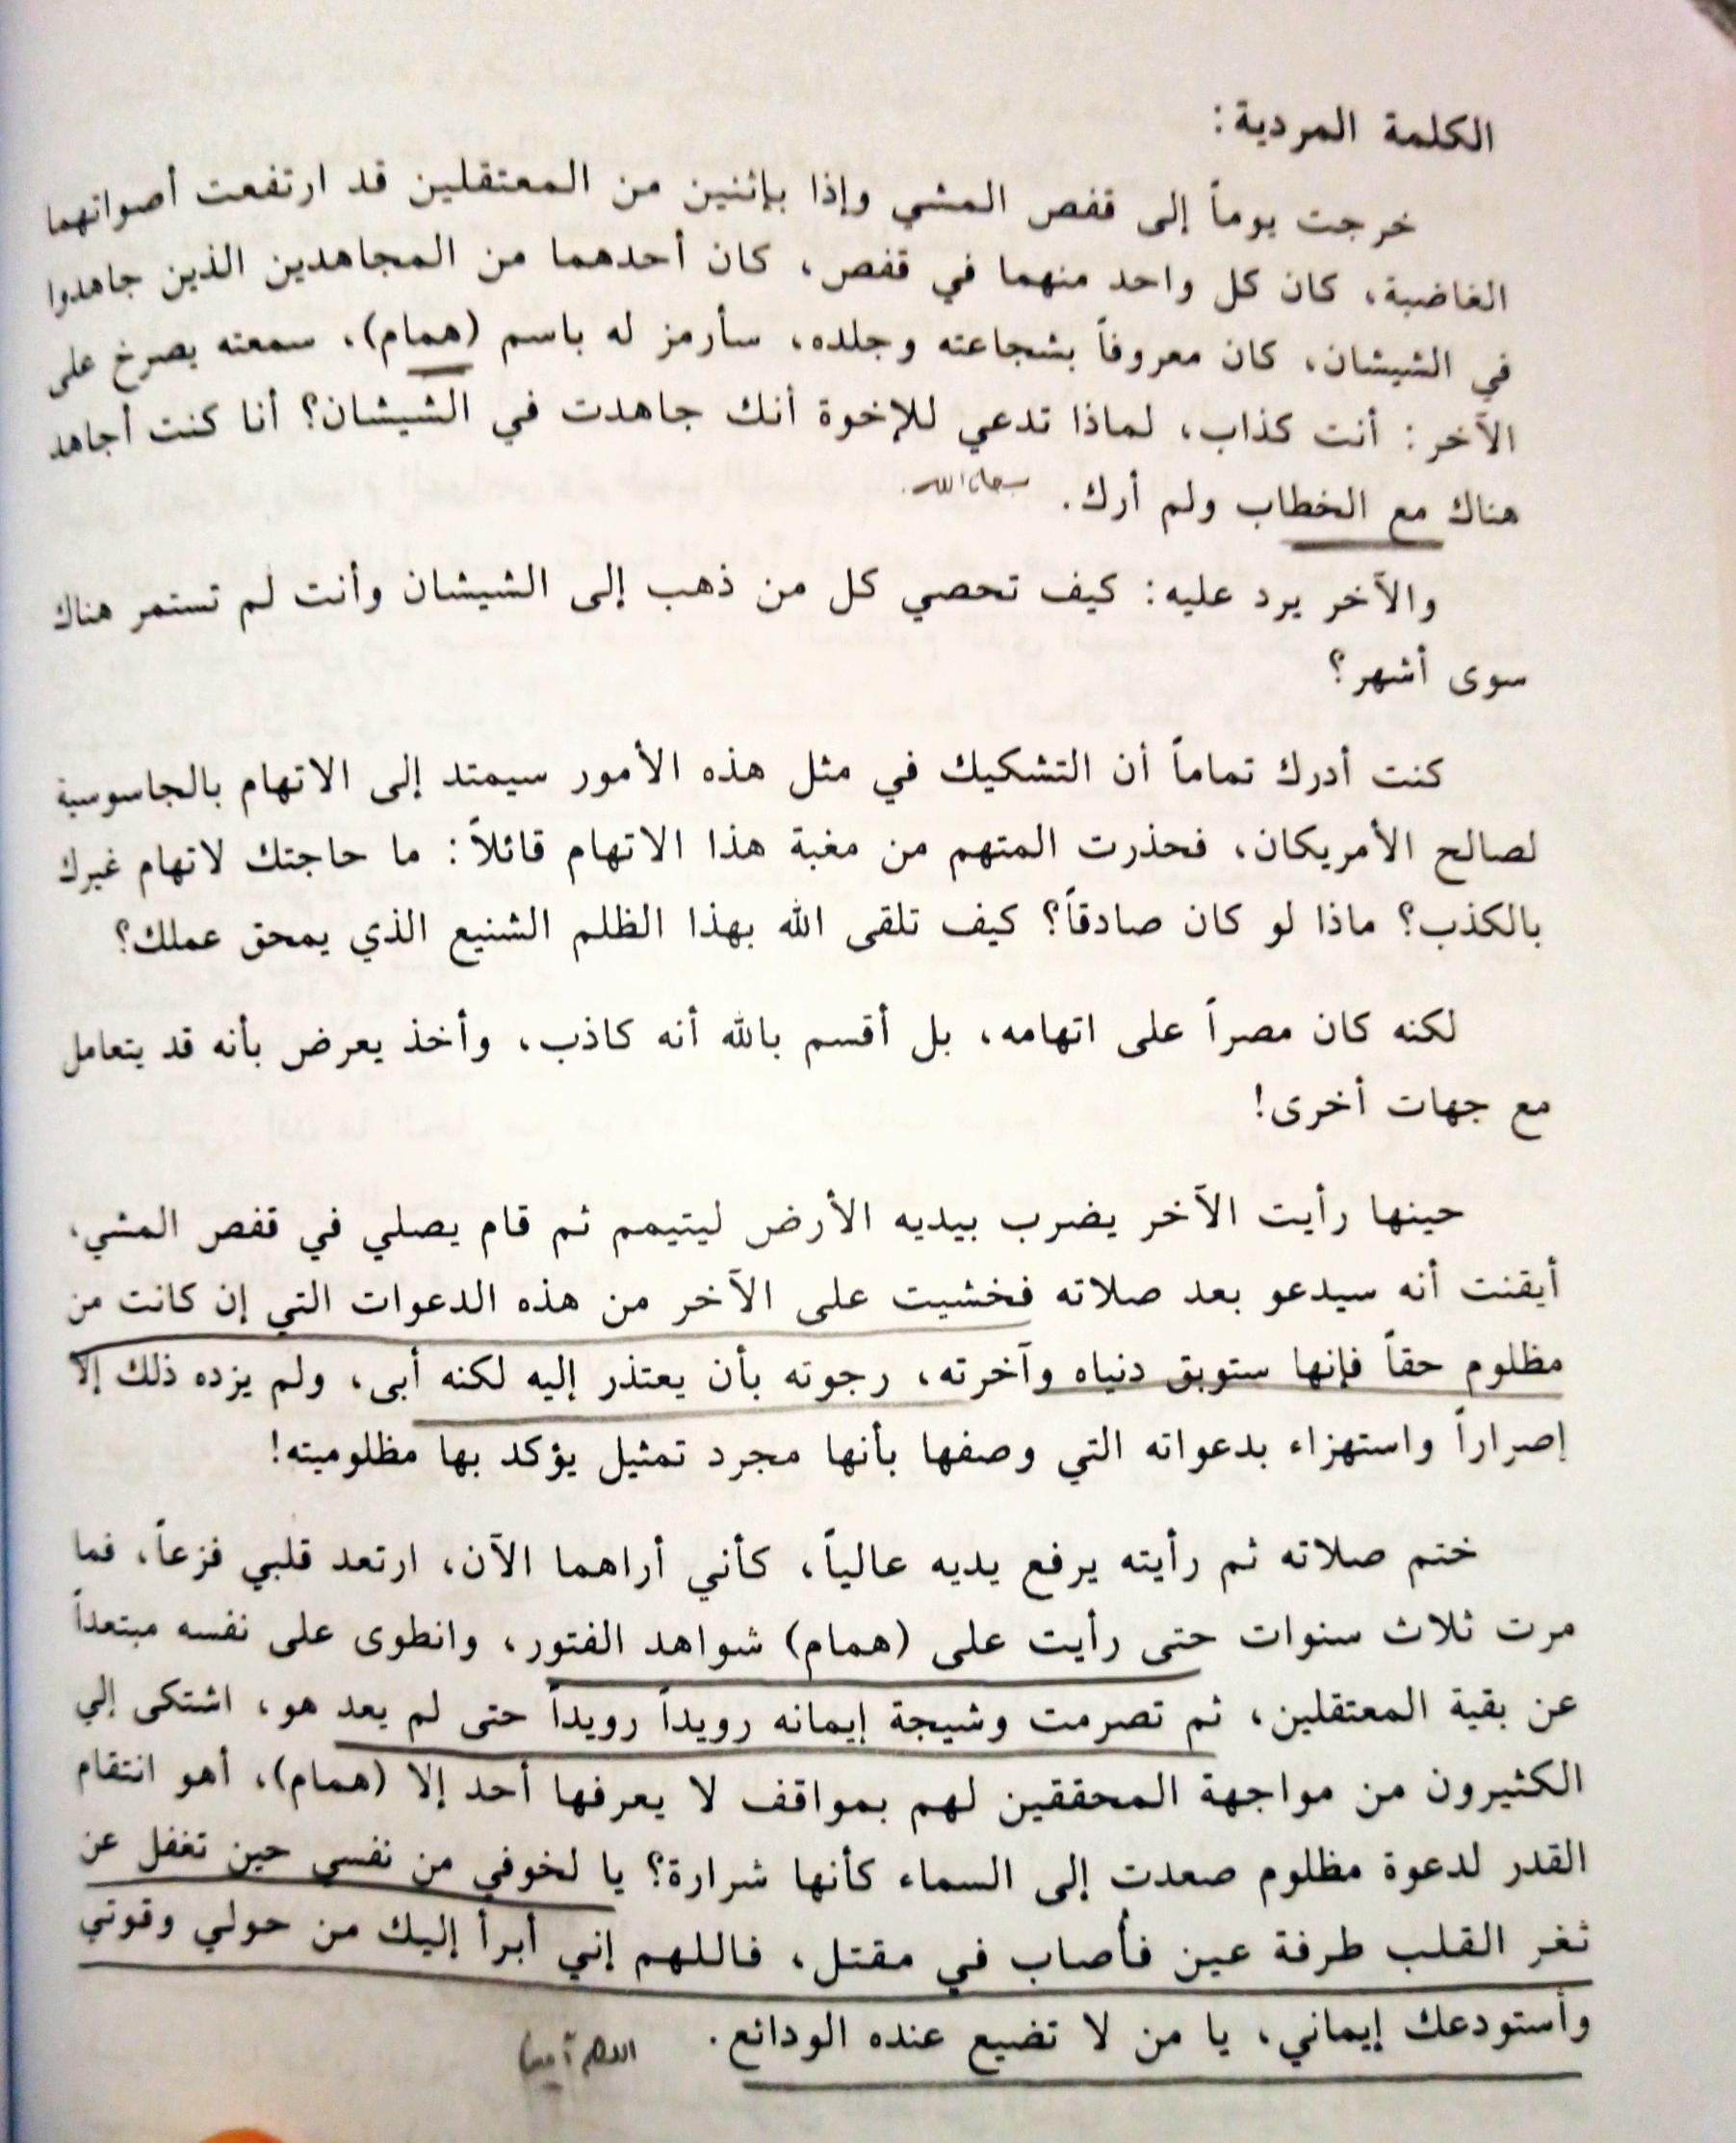 الكلمة المردية:
خرجت يوماً إلى قفص المشي وإذا بإثنين من المعتقلين قد ارتفعت أصواتهما
الغاضبة، كان كل واحد منهما في قفص، كان أحدهما من المجاهدين الذين جاهدوا
في الشيشان، كان معروفاً بشجاعته وجلده، سأرمز له باسم (همام)، سمعته يصرخ على
الآخر: أنت كذاب، لماذا تدعي للإخوة أنك جاهدت في الشيشان؟ أنا كنت أجاهد
هناك مع الخطاب ولم أرك. سبحان الله.
والآخر يرد عليه: كيف تحصي كل من ذهب إلى الشيشان وأنت لم تستمر هناك
سوى أشهر؟
كنت أدرك تماماً أن التشكيك في مثل هذه الأمور سيمتد إلى الاتهام بالجاسوسية
لصالح الأمريكان، فحذرت المتهم من مغبة هذا الاتهام قائلاً: ما حاجتك لاتهام غيرك
بالكذب؟ ماذا لو كان صادقاً؟ كيف تلقى الله بهذا الظلم الشنيع الذي يمحق عملك؟
لكنه كان مصراً على اتهامه، بل أقسم بالله أنه كاذب، وأخذ يعرض بأنه قد يتعامل
مع جهات أخرى!
حينها رأيت الآخر يضرب بيديه الأرض ليتيمم ثم قام يصلي في قفص المشي،
أيقنت أنه سيدعو بعد صلاته فخشيت على الآخر من هذه الدعوات التي إن كانت من
مظلوم حقاً فإنها ستوبق دنياه وآخرته، رجوته بأن يعتذر إليه لكنه أبى، ولم يزده ذلك إلا
إصراراً واستهزاء بدعواته التي وصفها بأنها مجرد تمثيل يؤكد بها مظلوميته!
ختم صلاته ثم رأيته يرفع يديه عالياً، كأني أراهما الآن، ارتعد قلبي فزعاً، فما
مرت ثلاث سنوات حتى رأيت على (همام) شواهد الفتور، وانطوى على نفسه مبتعداً
عن بقية المعتقلين، ثم تصرمت وشيجة إيمانه رويداً رويداً حتى لم يعد هو، اشتكى إلي
الكثيرون من مواجهة المحققين لهم بمواقف لا يعرفها أحد إلا (همام)، أهو انتقام
القدر لدعوة مظلوم صعدت إلى السماء كأنها شرارة؟ يا لخوفي من نفسي حين تغفل عن
ثغر القلب طرفة عين فأصاب في مقتل، فاللهم إني أبرأ إليك من حولي وقوتي
وأستودعك إيماني، يا من لا تضيع عنده الودائع. اللهم آمين